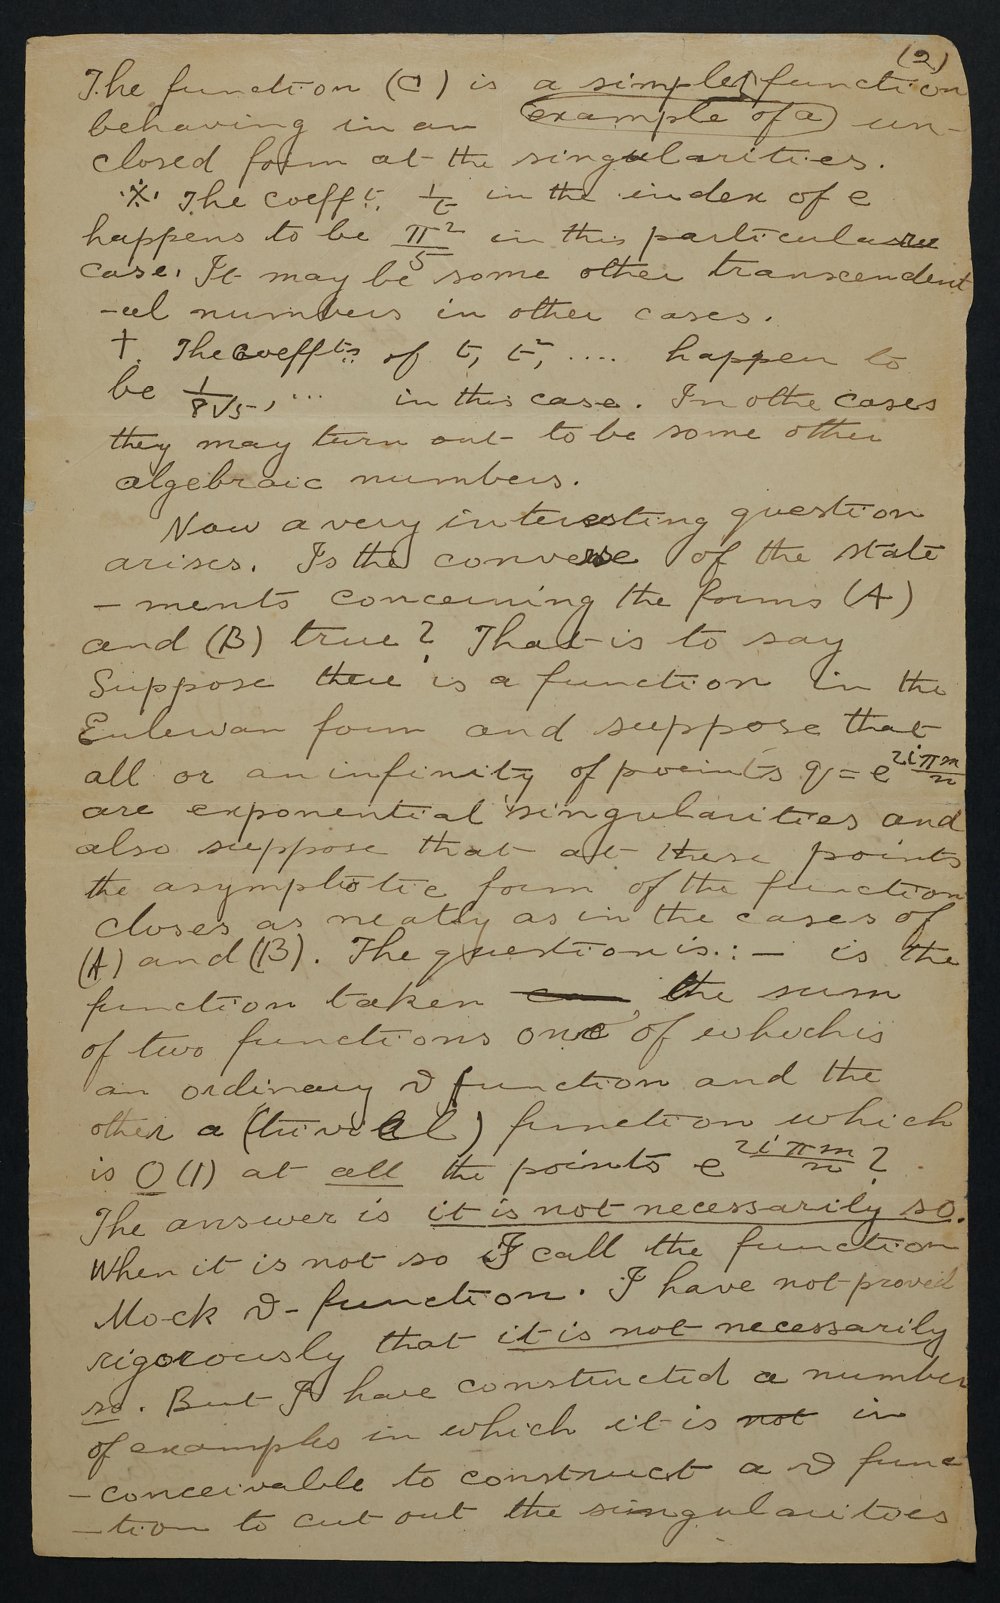 (2)
The function (C) is a simple function
behaving in an example of a un-
closed form at the singularities.
※ The coefft. 1/t in the index of e
happens to be π²/5 in this particular
case. It may be some other transcendent
-al numbers in other cases.
†. The coeffts. of t, t², .... happen to
be 1/8√5, ... in this case. In othe cases
they may turn out to be some other
algebraic numbers.
Now a very interesting question
arises. Is the converse of the state
-ments concerning the forms (A)
and (B) true? That is to say
Suppose there is a function in the
Eulerian form and suppose that
all or an infinity of points q = e^{2iπm/n}
are exponential singularities and
also suppose that at these points
the asymptotic form of the function
closes as neatly as in the cases of
(A) and (B). The question is: — is the
function taken the sum
of two functions one of which is
an ordinary ϑ function and the
other a (trivial) function which
is O(1) at all the points e^{2iπm/n}?
The answer is it is not necessarily so.
When it is not so I call the function
Mock ϑ-function. I have not proved
rigorously that it is not necessarily
so. But I have constructed a number
of examples in which it is not in
-conceivable to construct a ϑ func
-tion to cut out the singularities